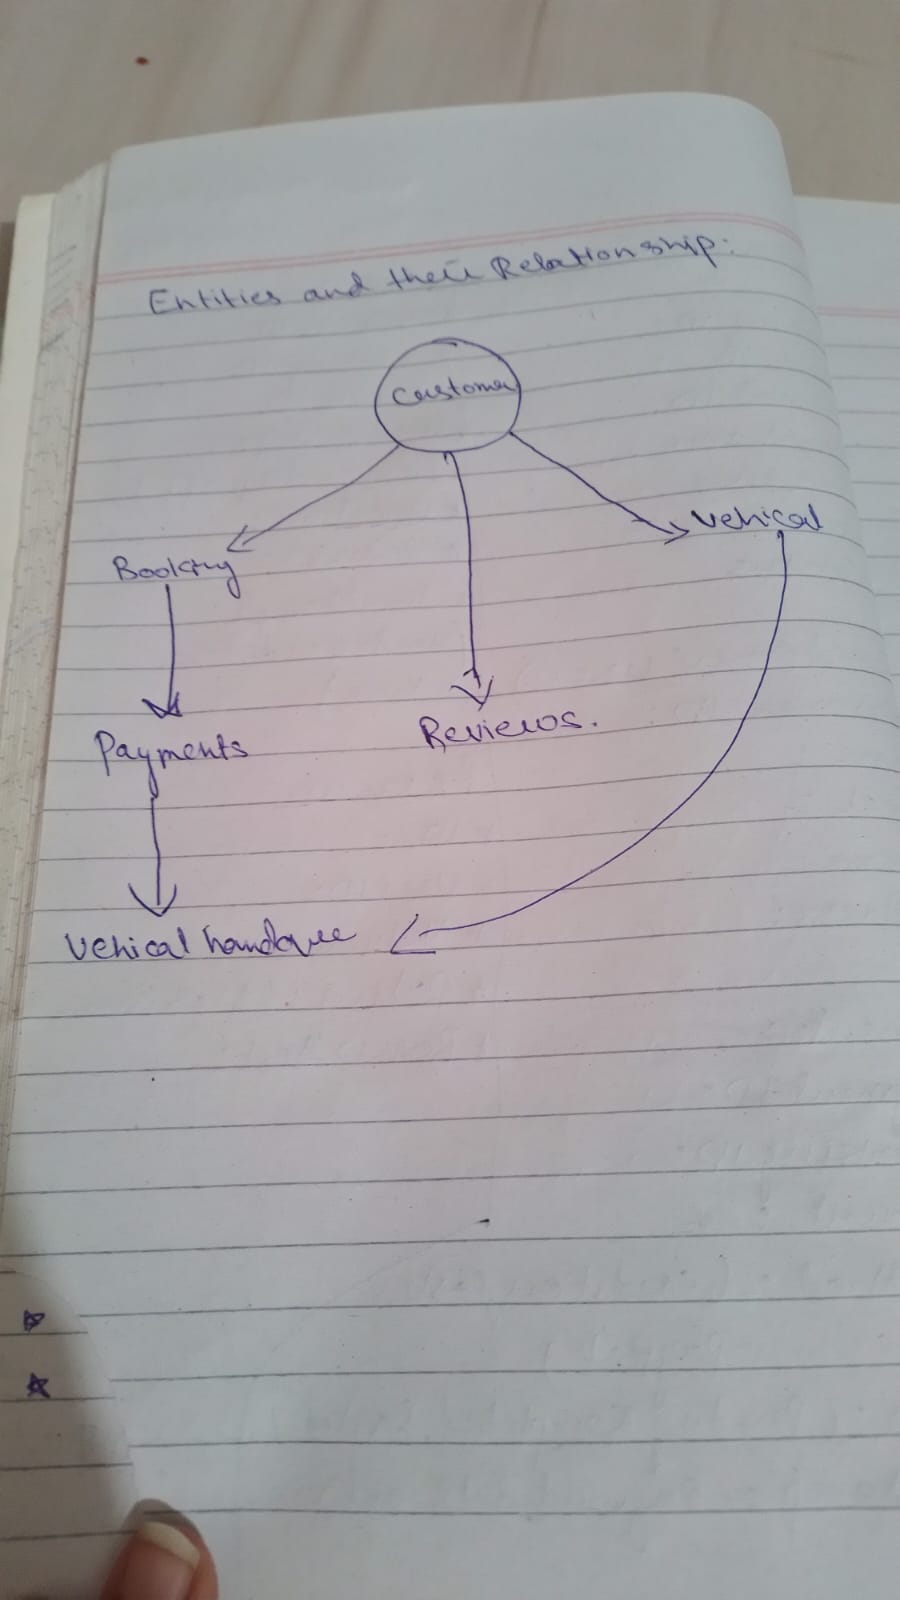 Entities and their Relationship:
Customer
Vehical
Booking
Reviews.
Payments
Vehical handover